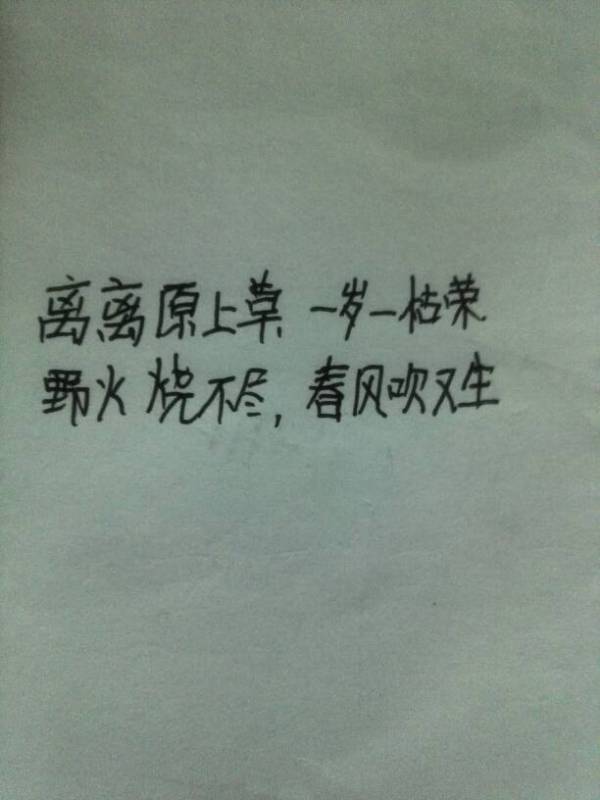 离离原上草 一岁一枯荣
野火烧不尽，春风吹又生